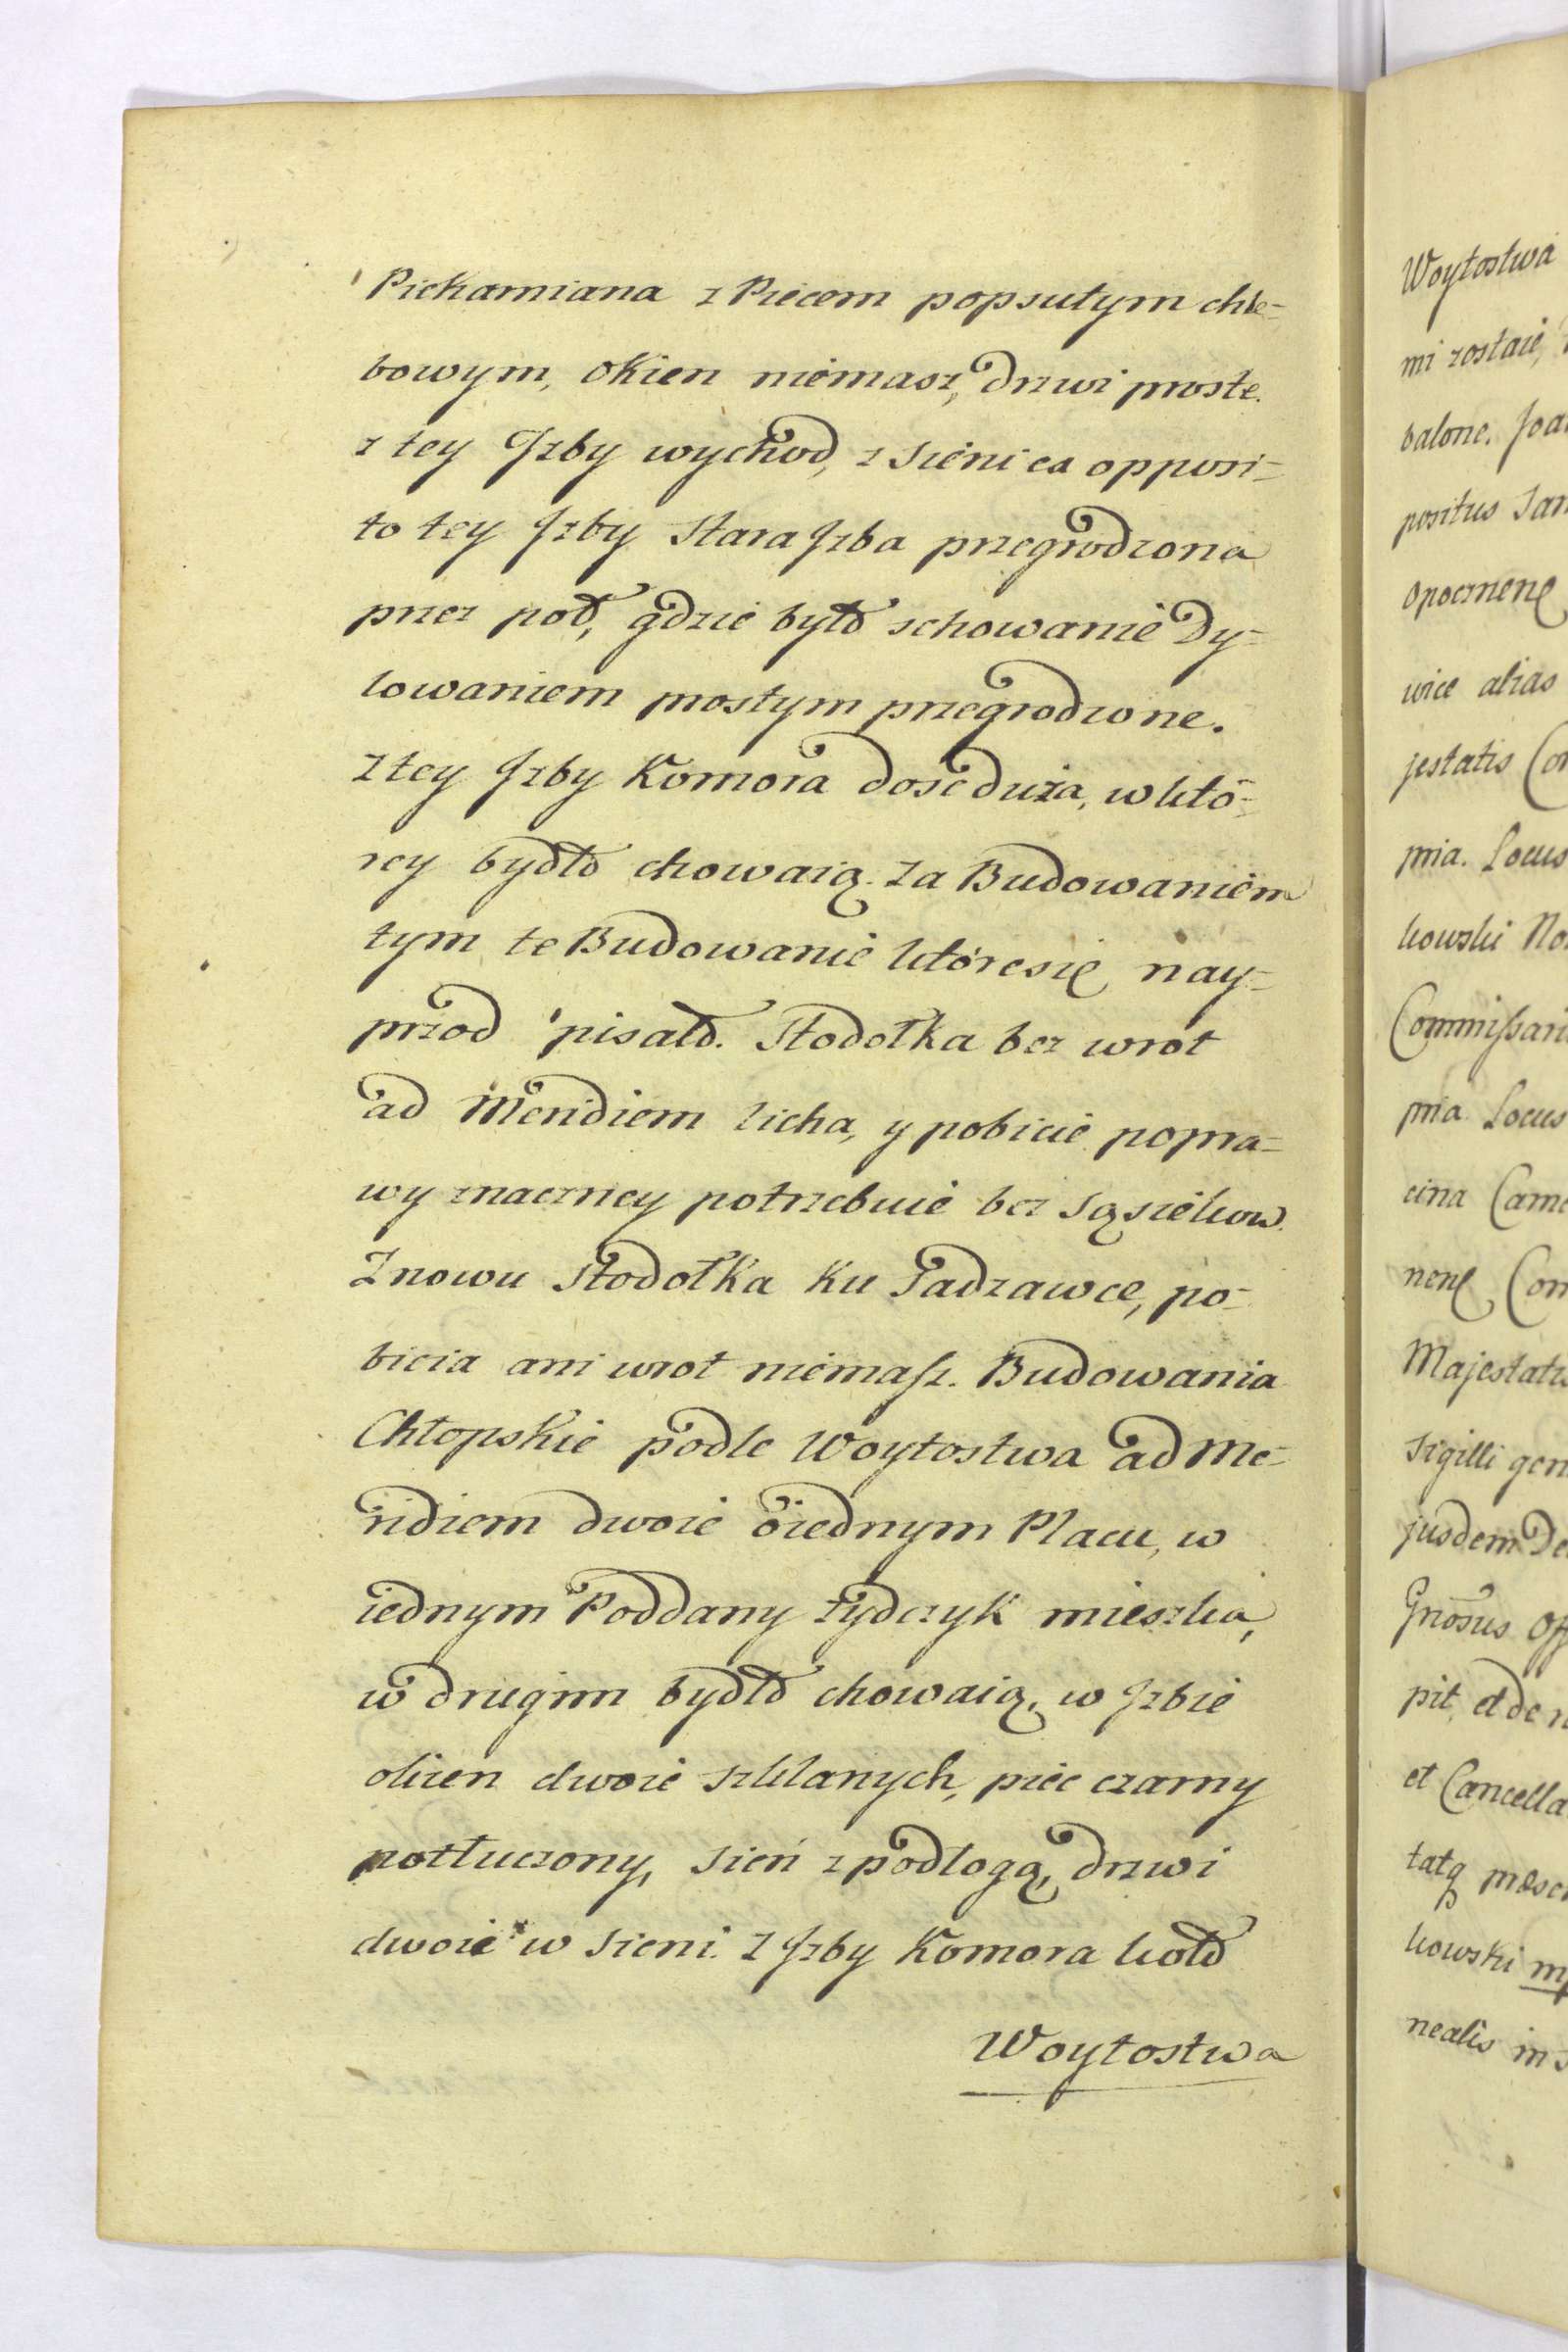 Piekarniana z Piecem popsutym chle-
bowym, okien niemasz, drzwi proste.
z tey Jzby wychod, z Sieni ex opposi-
to tey Jzby Stara Jzba przegrodzona
przez poł, gdzie było schowanie Dy-
lowaniem prostym przegrodzone.
Z tey Jzby Komora dosc duża, w któ-
rey bydło chowaią. Za Budowaniem
tym te Budowanie które się nay-
przod pisało. Stodołka bez wrot
ad Meridiem licha, y pobicie popra-
wy znaczney potrzebuie bez Sąsiekow.
Znowu Stodołka ku Sadzawce, po-
bicia ani wrot niemasz. Budowania
Chłopskie podle Woytostwa ad Me-
ridiem dwoie o iednym Placu, w
iednym Poddany Zydczyk mieszka,
w drugim bydło chowaią, w Jzbie
okien dwoie szklanych, piec czarny
potłuczony, Sień z podłogą, drzwi
dwoie w Sieni. Z Jzby Komora koło
Woytostwa
Woytostwa
mi zostaie,
balone. Joa
positus
Opocznenę
wice alias
jestatis Co
pria. Locus
kowski No
Commissari
pria Locus
cina Came
nenę Com
Majestatis
Sigilli gen
jusdem De
Gnosus Of
pit, et de
et Cancella
tatą præsc
kowski mp
nealis in